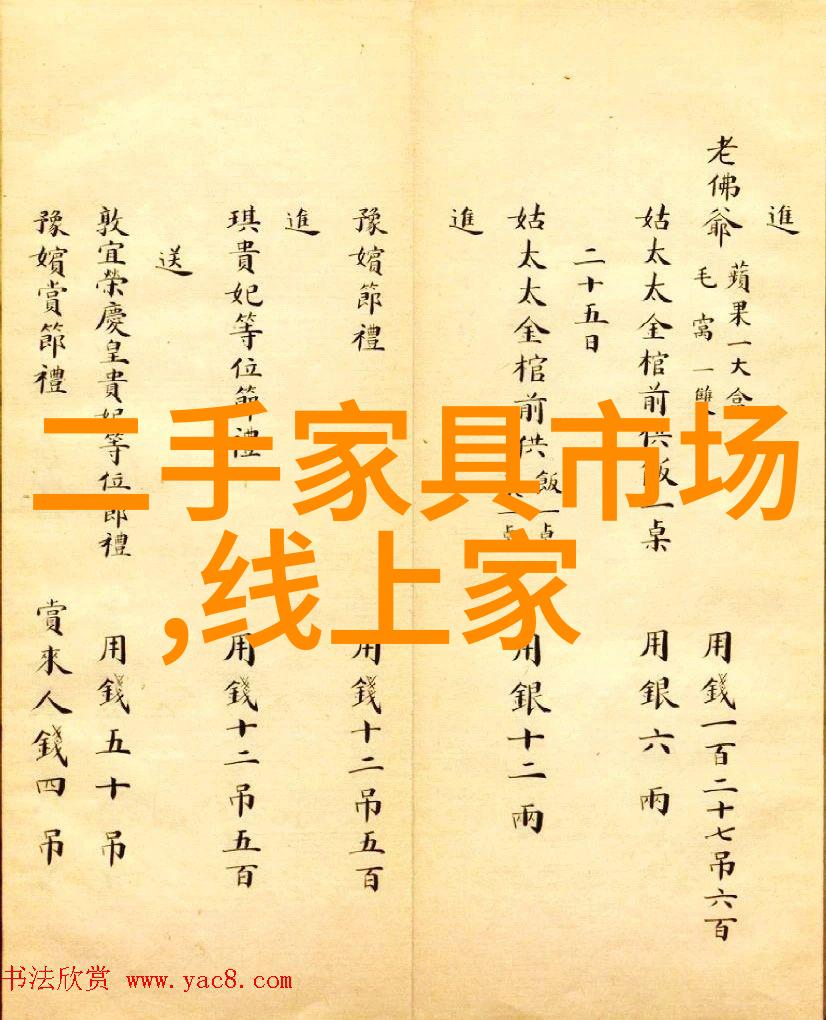 進
老佛爺 蘋果一大盒 毛窩一雙 用錢一百二十七吊六百
姑太太金棺前供飯一桌 用銀六兩
二十五日
姑太太金棺前供飯一桌 用銀十二兩
進
豫嬪節禮 用錢十二吊五百
進
琪貴妃等位節禮 用錢十二吊五百
送
敦宜榮慶皇貴妃等位節禮 用錢五十吊
豫嬪賞節禮 賞來人錢四吊
二手家具市场
,线上家
书法欣赏 www.yac8.com